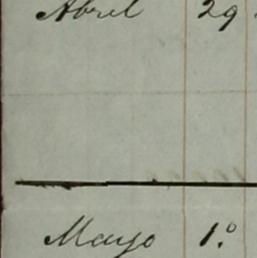 Abril 29
Mayo 1.º